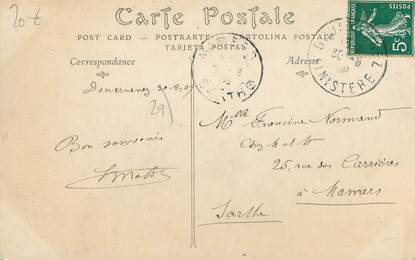 20€
Carte Postale
POST CARD — POSTKARTE — CARTOLINA POSTALE
TARJETA POSTAL
Correspondance
Adresse
REPUBLIQUE FRANÇAISE
5c
FINISTERE
Douarnenez 30-8-09
29
Bon souvenir
Mlle Francine Normand
Chez M. et Mme
25, rue des Carrières
à Mamers
Sarthe